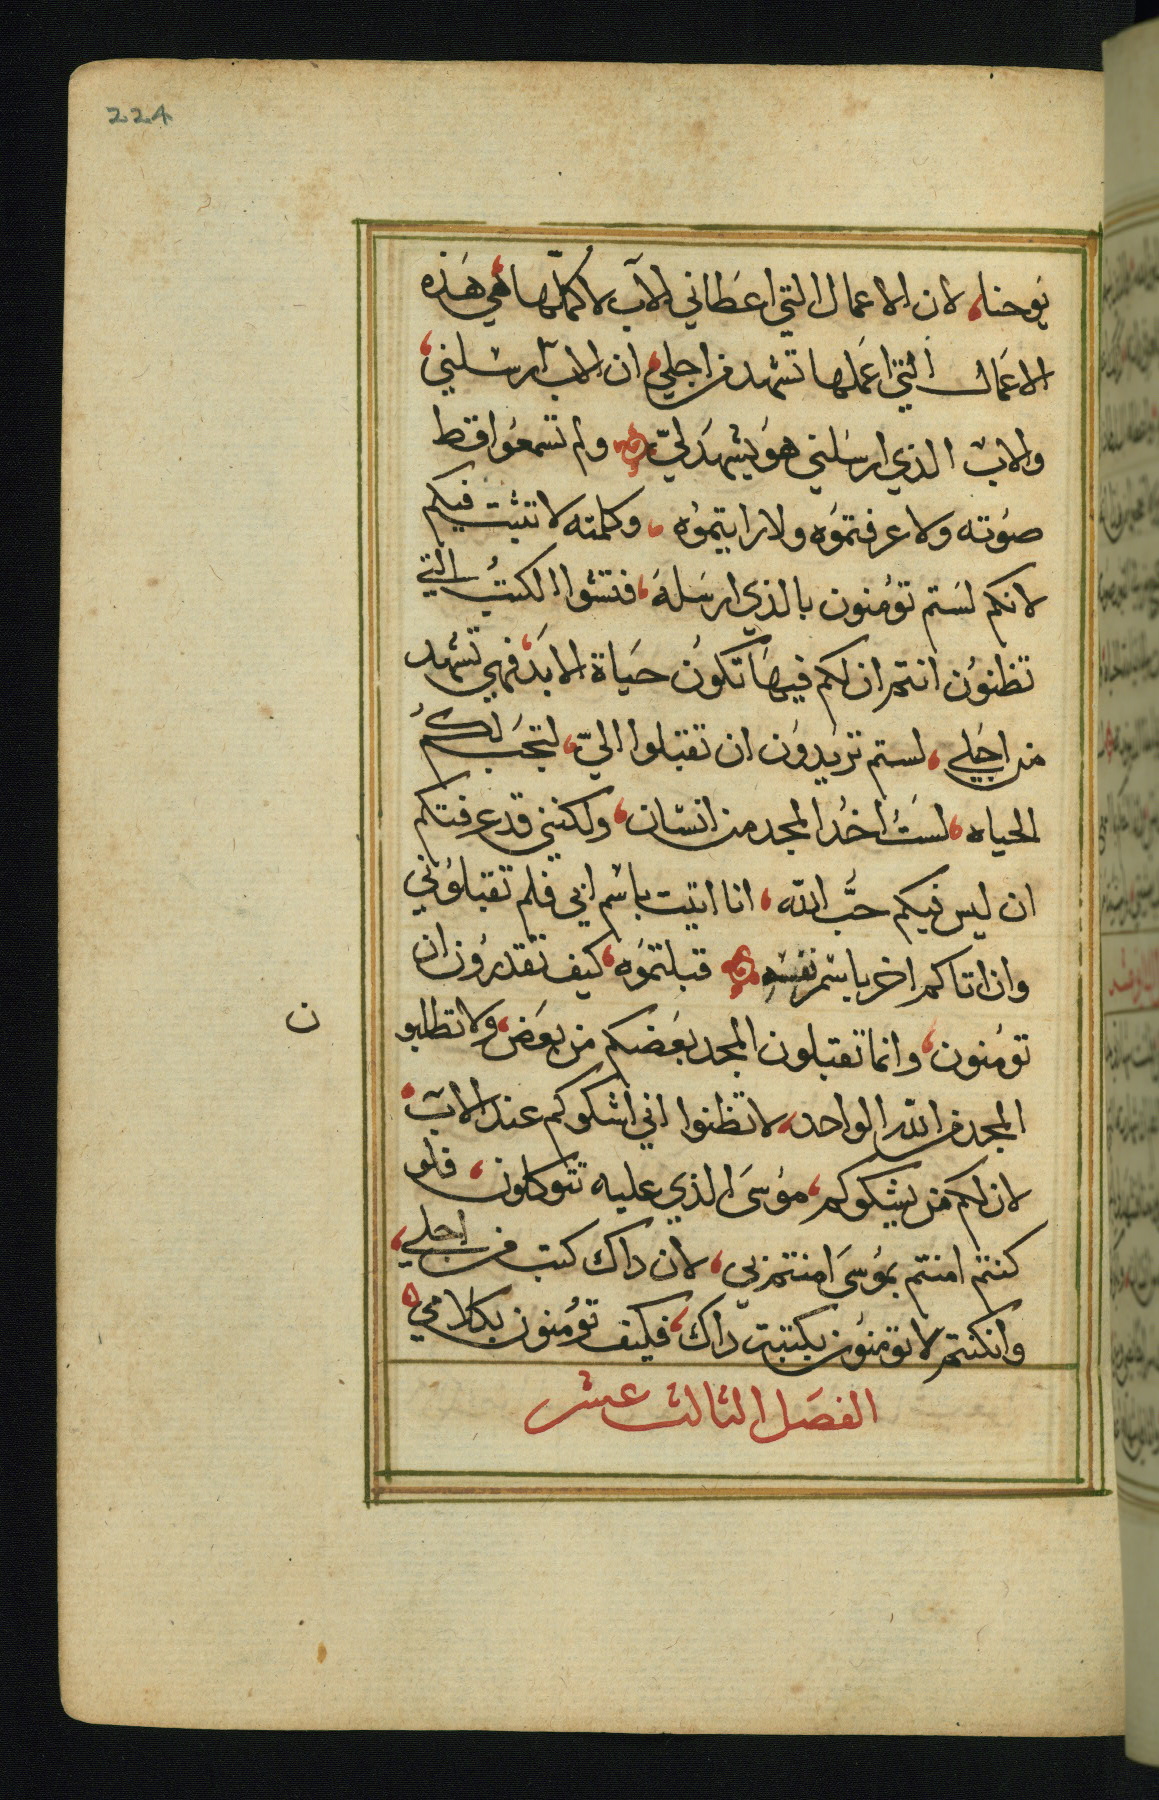 224
يوحنا، لان الاعمال التي اعطاني الاب لاكملّها، هي هذه
الاعمال التي اعملها تشهد من اجلي، ان الاب ارسلني،
والاب الذي ارسلني هو يشهد لي ولم تسمعوا قط
صوته ولا عرفتموه ولا رايتموه، وكلمته لا تثبت فيكم
لانكم لستم تؤمنون بالذي ارسله، فتشوا الكتب التي
تظنون انتم ان لكم فيها تكون حياة الابد، فهي تشهد
من اجلي، لستم تريدون ان تقبلوا اليّ، لتجب لكم
الحياه، لستُ اخد المجد من انسان، ولكنني قد عرفتكم
ان ليس فيكم حبُّ الله، انا اتيت باسم ابي فلم تقبلوني
وان اتاكم اخر باسم نفسه قبلتموه، كيف تقدرون ان
تؤمنون، وانما تقبلون المجد بعضكم من بعض، ولا تطلبو
ن
المجد من الله الواحد، لا تظنوا اني اشكوكم عند الاب،
لان لكم من يشكوكم، موسى الذي عليه تتوكلون، فلو
كنتم امنتم بموسى امنتم بي، لان داك كتب من اجلي،
وانكنتم لا تؤمنون بكتبت داك، فكيف تؤمنون بكلامي،
الفصل الثالث عشر